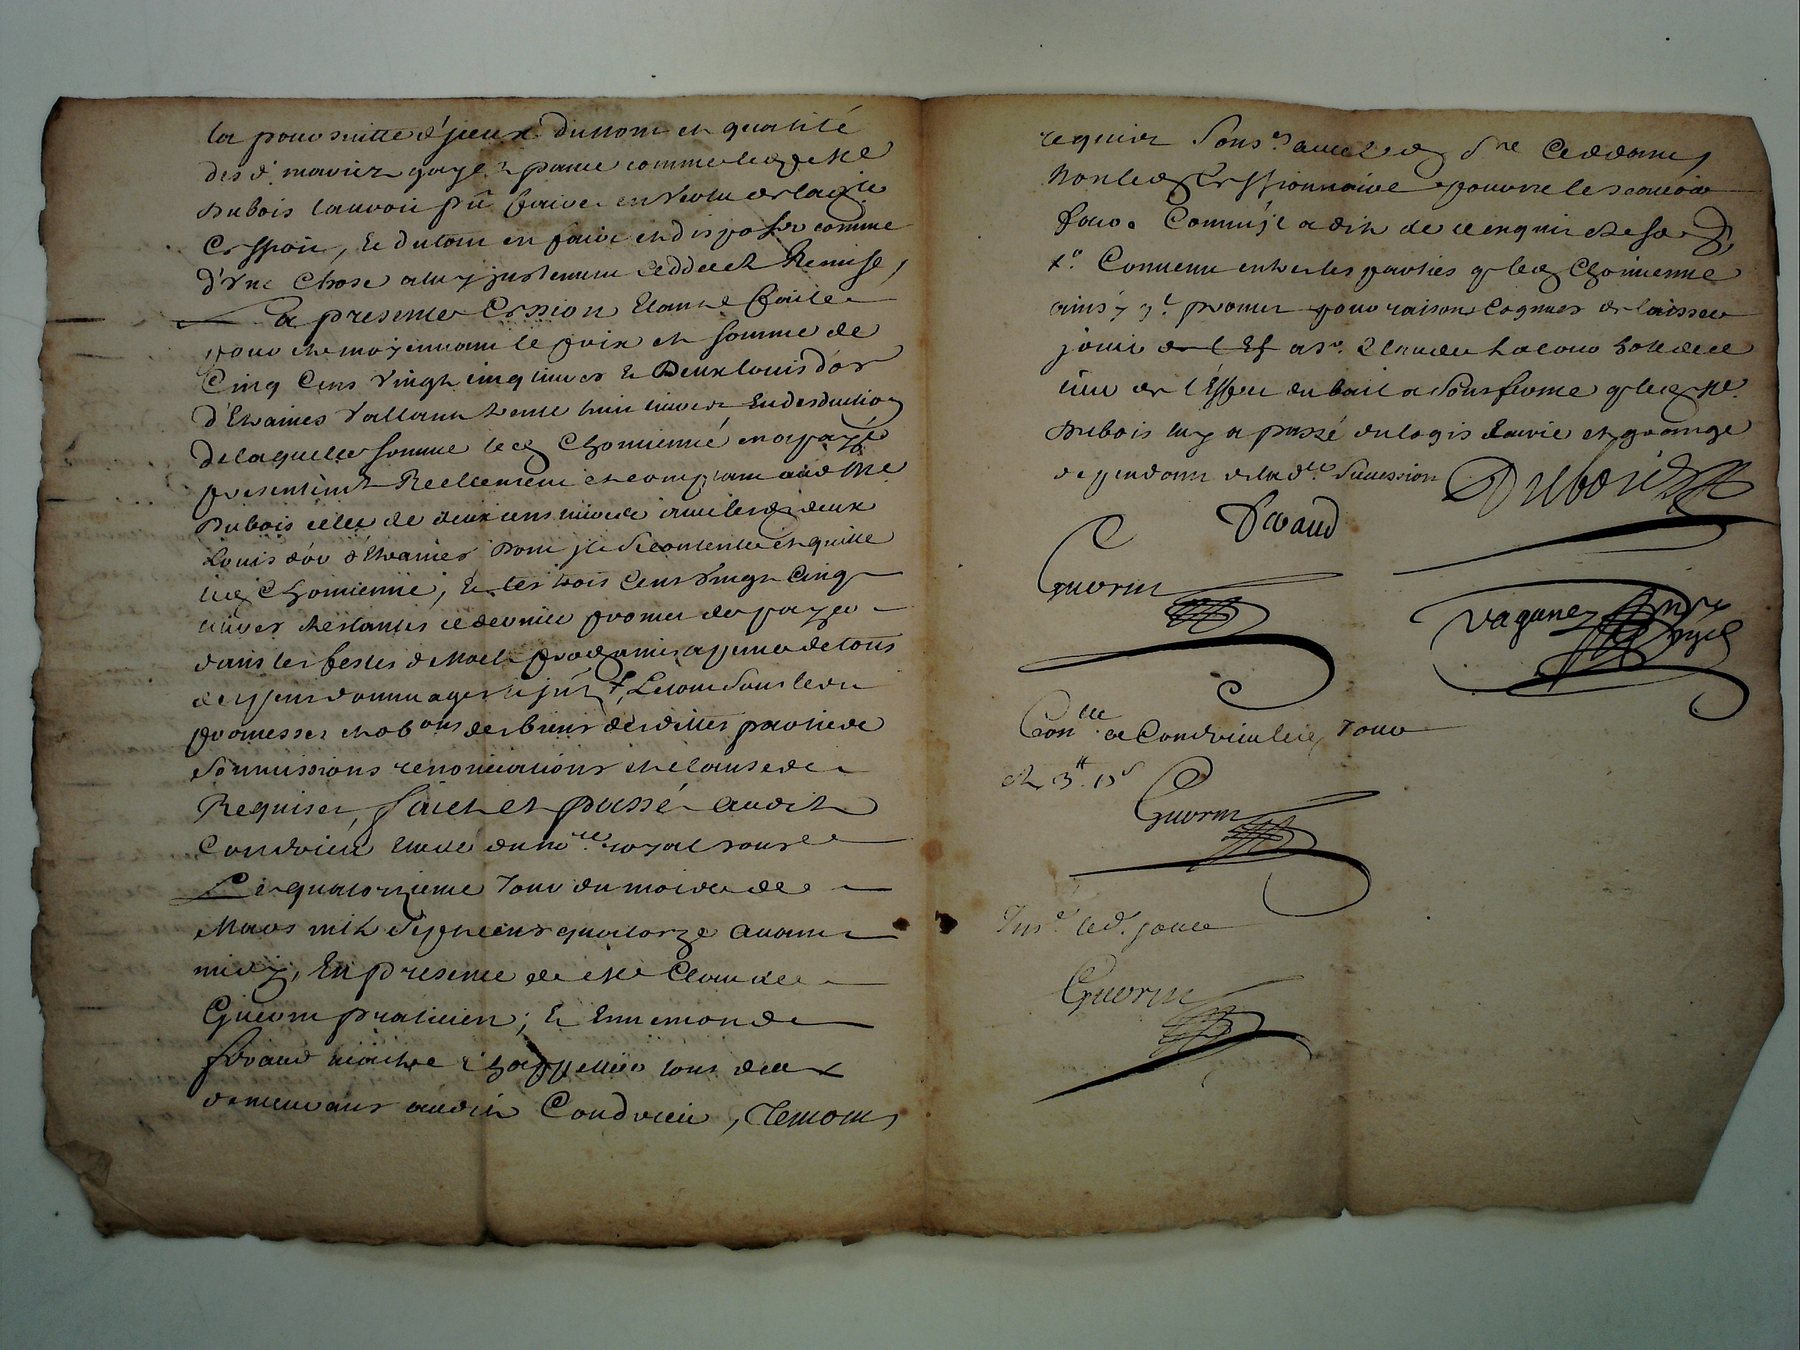 la poursuitte d'jceux du nom et qualité
des d. mariez
Dubois l'auroit pû faire en vertu de lad.
Cession, et du tout en faire et disposer comme
d'une chose a luy justement ceddée et Remise,
La presente Cession étant faite
pour et moyennant le prix et somme de
Cinq Cens vingt cinq livres et Deux louis d'or
d'Etraines vallant trente huit livres En desduction
de laquelle somme led Chomienne en a payé
presentemt Reellement et comptant aud Me
Dubois celle de deux cens livres avec lesd deux
Louis d'or d'Etraines dont jl se contente et quitte
led Chomienne, et les trois Cens vingt Cinq
livres restantes ce dernier promet de payer
dans les festes de Noel prochaines a peine de tous
despens dommages et jnt Le tout sous les
promesses et obons des biens desdittes parties
soumissions renonciations et clauses
Requises, faict et passé audit
Condrieu étude du nore royal sousé
Le quatorzieme Jour du mois de
Mars mil sept cens quatorze avant
midy, En presence de Me Claude
Guerin praticien; et Ennemond
Favaud maitre chappellier tous deux
demeurans audit Condrieu, Temoins
requis sousnes avec led Sr Ceddant,
Non led Cessionnaire pour ne le scavoir
faire Comm' jl a dit de ce enquis et
Convenu entre les parties q led Chomienne
jouir de l'Ef a sr. Claude
de l'Effet du bail a sousferme q led Me.
Dubois luy a passé du logis Ecurie et grange
dependant de lad. Succession Dubois
Favaud
Guerin
Vaganey
Conlle a Condrieu led Jour
Guerin
Jns led. jour
Guerin